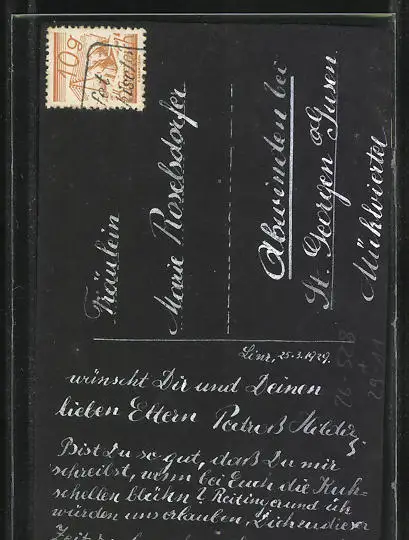 10g
Fräulein
Marie Roselsdorfer
Abwinden bei
St. Georgen o/d Gusen
Mühlviertel
Linz, 25.3.1929.
wünscht Dir und Deinen
lieben Eltern
Bist Du so gut, daß Du mir
schreibst, wenn bei Euch die Kuh-
schellen blühn? Reitinger und ich
würden uns erlauben, Dich in dieser
Zeit